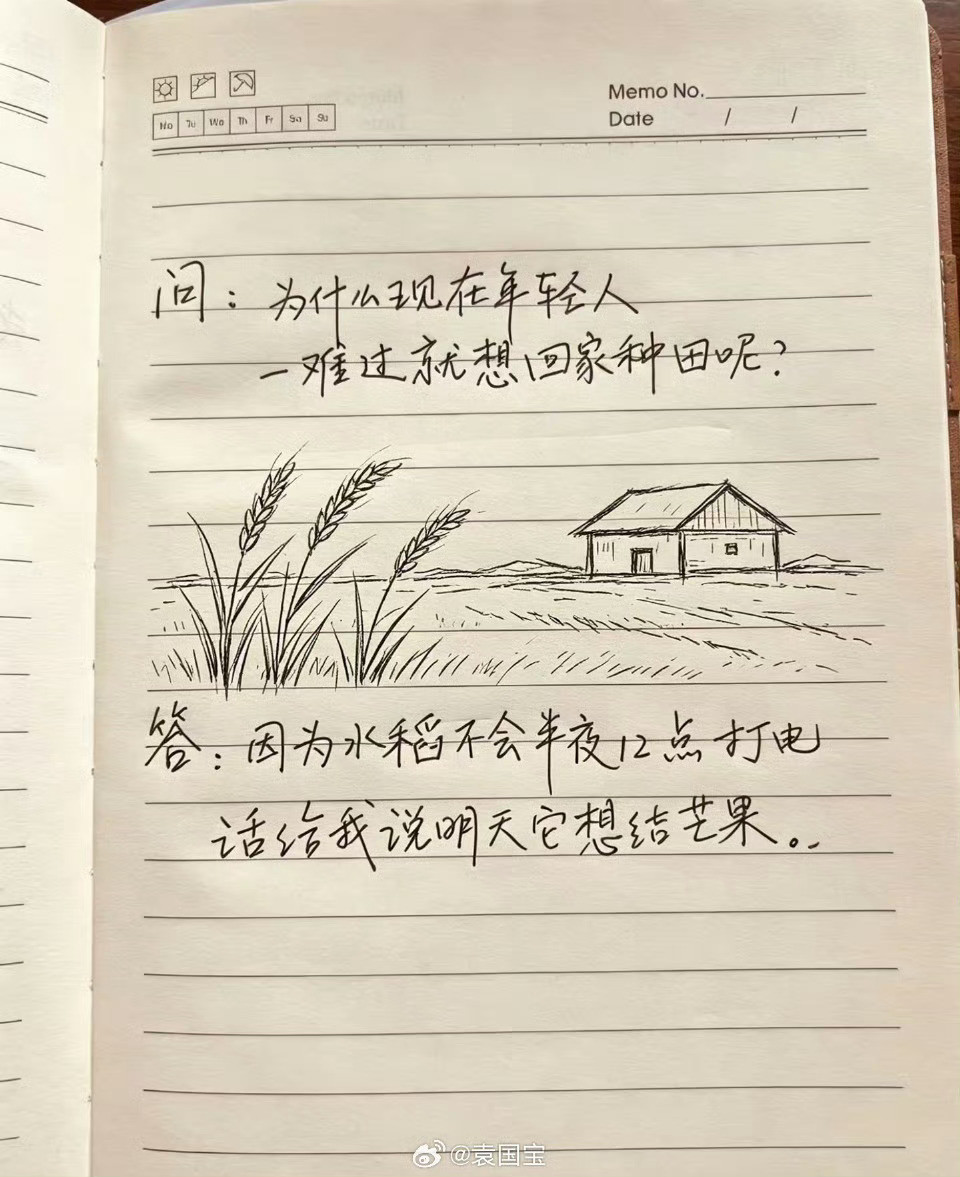 Memo No.
Mo Tu We Th Fr Sa Su
Date / /
问：为什么现在年轻人
一难过就想回家种田呢？
答：因为水稻不会半夜12点打电
话给我说明天它想结芒果。..
@袁国宝